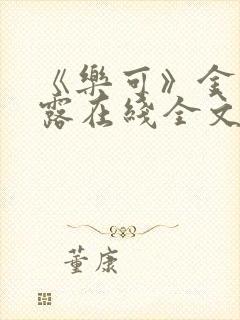 《樂可》金
露在綫全文
董康